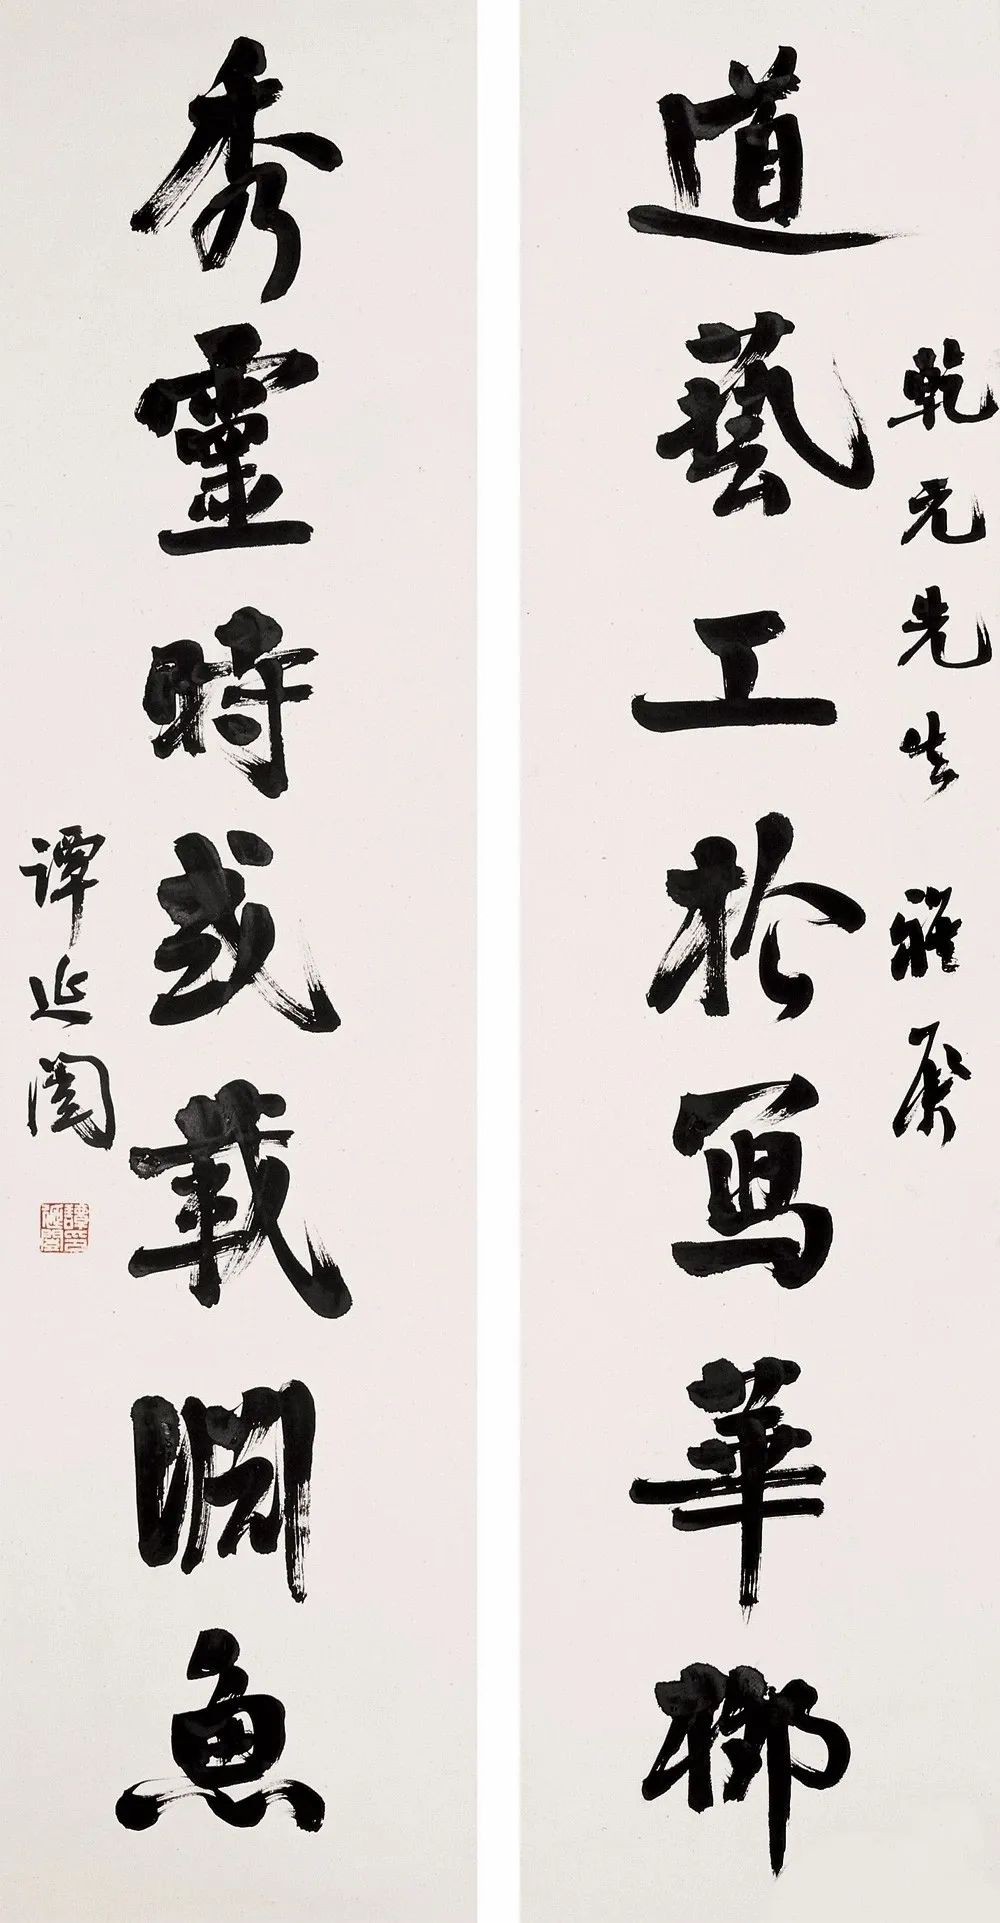 乾元先生雅屬
道藝工於寫華柳
秀靈時或載淵魚
譚延闓
譚印延闓